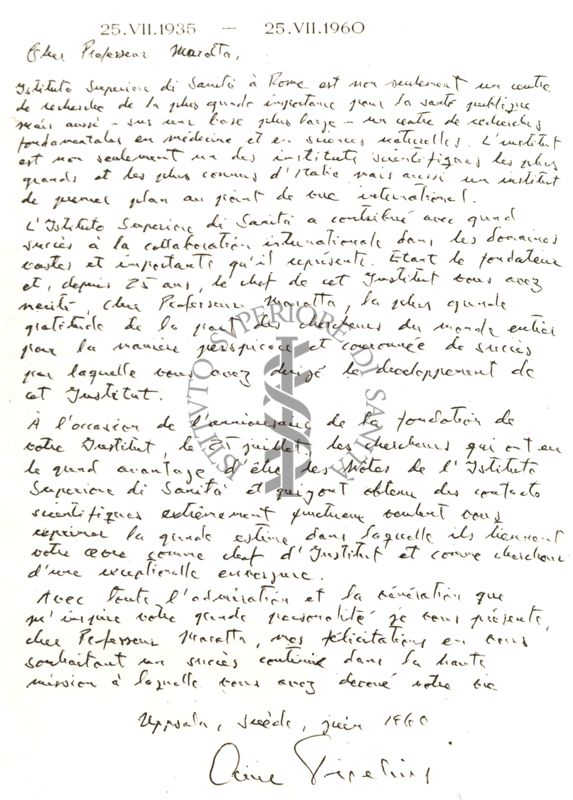 25.VII.1935 — 25.VII.1960
Cher Professeur Marotta,
Istituto Superiore di Sanità à Rome est non seulement un centre
de recherche de la plus grande importance pour la santé publique
mais aussi – sur une base plus large – un centre de recherches
fondamentales en médecine et en sciences naturelles. L'institut
est non seulement un des instituts scientifiques les plus
grands et les plus connus d'Italie mais aussi un institut
de premier plan au point de vue international.
L'Istituto Superiore di Sanità a contribué avec grand
succès à la collaboration internationale dans les domaines
vastes et importants qu'il représente. Étant le fondateur
et, depuis 25 ans, le chef de cet Institut vous avez
mérité, cher Professeur Marotta, la plus grande
gratitude de la part des chercheurs du monde entier
pour la manière perspicace et couronnée de succès
par laquelle vous avez dirigé le développement de
cet Institut.
À l'occasion de l'anniversaire de la fondation de
votre Institut, le 25 juillet, les chercheurs qui ont eu
le grand avantage d'être des hôtes de l'Istituto
Superiore di Sanità et qui y ont obtenu des contacts
scientifiques extrêmement fructueux veulent vous
exprimer la grande estime dans laquelle ils tiennent
votre œvre comme chef d'Institut et comme chercheur
d'une exceptionelle envergure.
Avec toute l'admiration et la vénération que
m'inspire votre grande personalité je vous présente,
cher Professeur Marotta, mes félicitations en vous
souhaitant un succès continué dans la haute
mission à laquelle vous avez dévoué votre vie
Uppsala, Suède, juin 1960
Arne Tiselius
ISTITVTO SVPERIORE DI SANITÀ